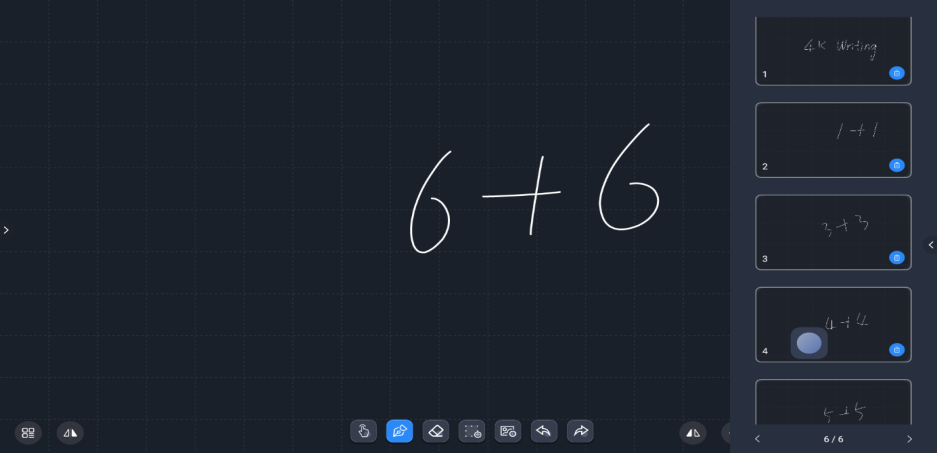 6+6
4K Writing
1
1+1
2
3+3
3
4+4
4
5+5
6 / 6